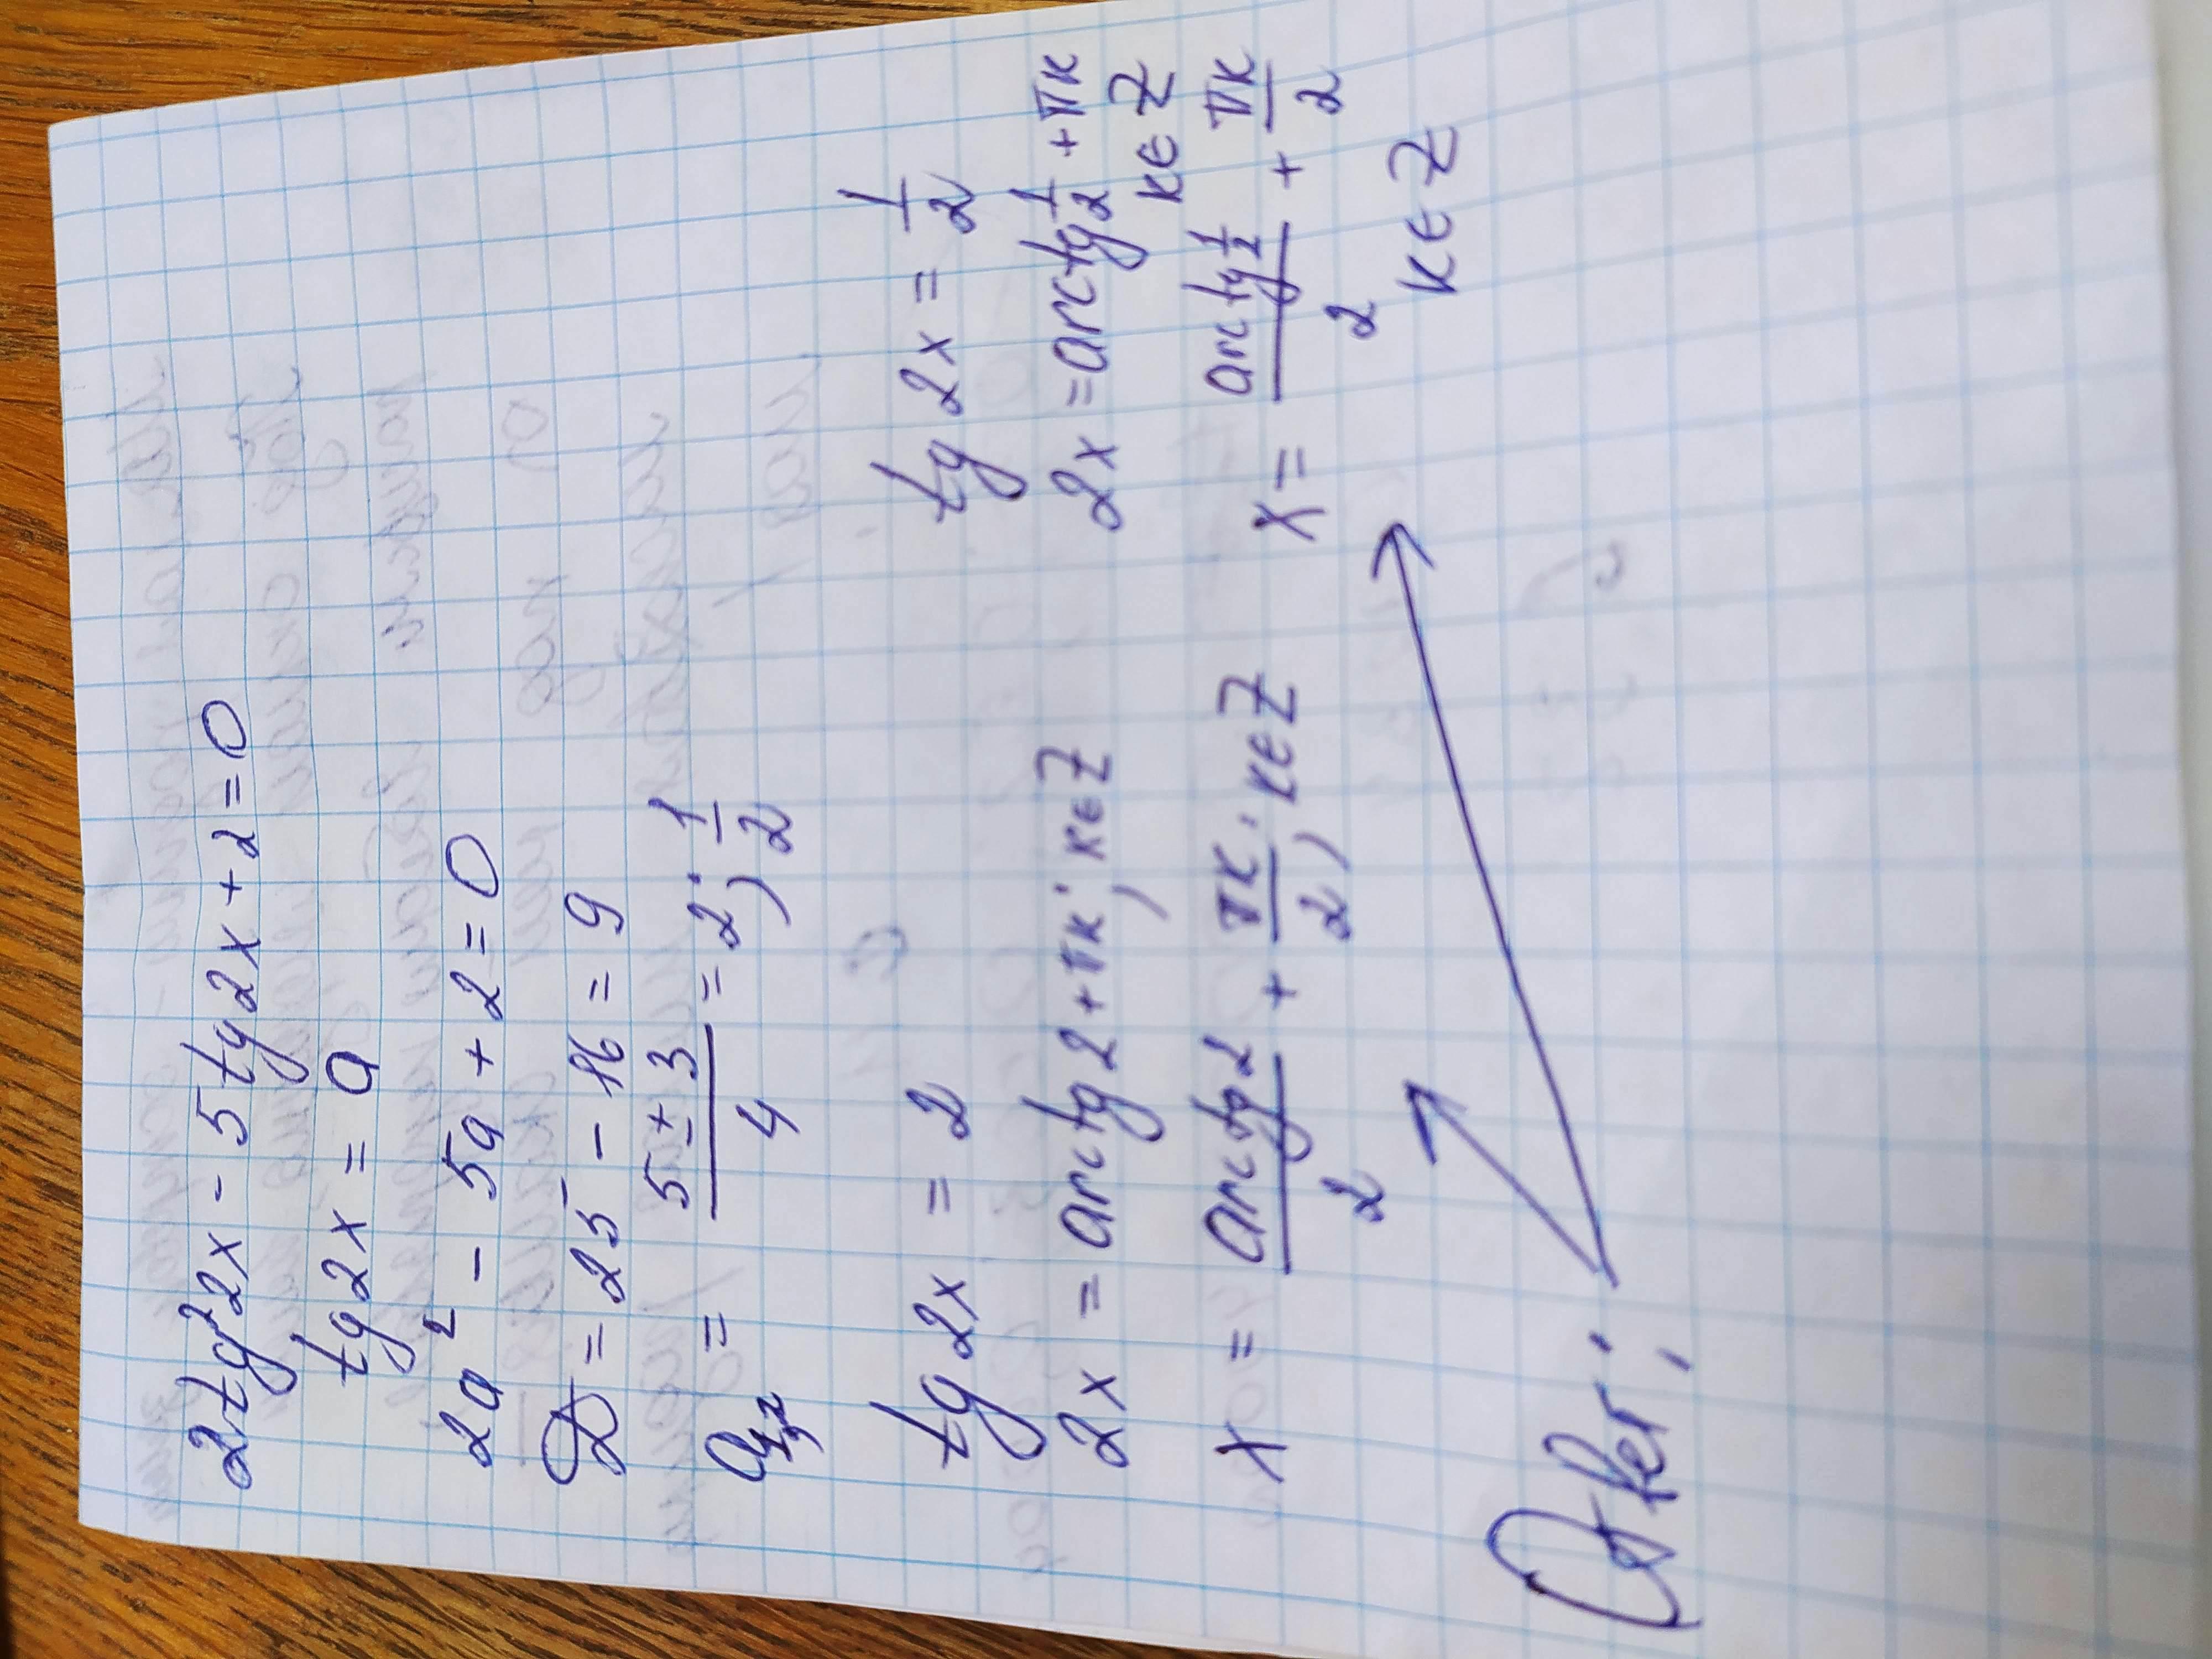 2tg²2x - 5tg2x + 2 = 0
tg2x = a
2a² - 5a + 2 = 0
D = 25 - 16 = 9
a₁,₂ = (5 ± 3)/4 = 2; 1/2
tg 2x = 2
2x = arctg2 + πк; к∈Z
x = arctg2/2 + πк/2; к∈Z
tg 2x = 1/2
2x = arctg 1/2 + πк
к∈Z
x = (arctg 1/2)/2 + πк/2
к∈Z
Ответ: